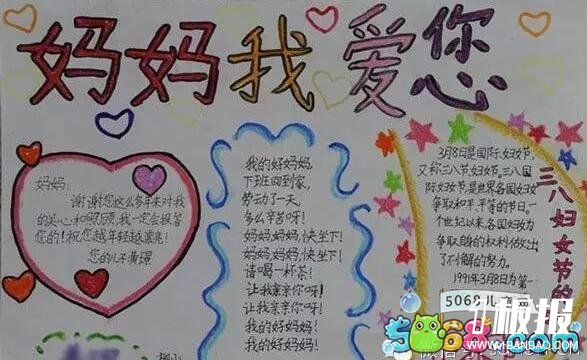 妈妈我爱您
妈妈:
谢谢您这么多年来对我
的关心和照顾,我一定会报答
您的!祝您越年轻越漂亮!
您的儿子黄璟
我的好妈妈
下班回到家,
劳动了一天,
多么辛苦呀!
妈妈妈妈快坐下!
妈妈妈妈快坐下!
请喝一杯茶!
让我亲亲你呀!
让我亲亲你呀!
我的好妈妈!
我的好妈妈!
3月8日是国际妇女节,
又称三八节妇女节。三八国
际妇女节,是世界各国妇女
争取和平、平等的节日。一
个世纪以来,各国妇女为
争取自身的权利做出
了不懈的努力。
1991年3月8日为第一
三八妇女节的
5068儿
板报
WWW.BANBAO.COM